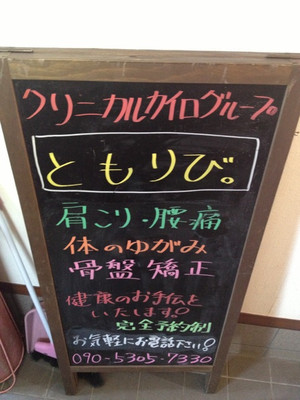 クリニカルカイログループ
ともりび。
肩こり・腰痛
体のゆがみ
骨盤矯正
健康のお手伝と
いたします!
完全予約制
お気軽にお電話下さい!
090-5305-7330